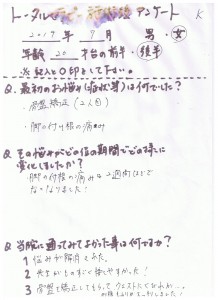 トータル アンケート K
2019年 9月 男・女
年齢 20 才台の前半・後半
※記入と〇印をして下さい。
Q.最初のお悩み(症状等)は何でしたか?
・骨盤矯正(2人目)
・脚の付け根の痛み
Q.そのお悩みがどの位の期間でどの様に
変化しましたか?
・脚の付け根の痛みも2週間ほどで
なくなりました!
Q.当院に通ってみて良かった事は何ですか?
1 悩みが解消された。
2 先生がものすごく話しやすかった!
3 骨盤を矯正してもらってウエストもくびれが、、